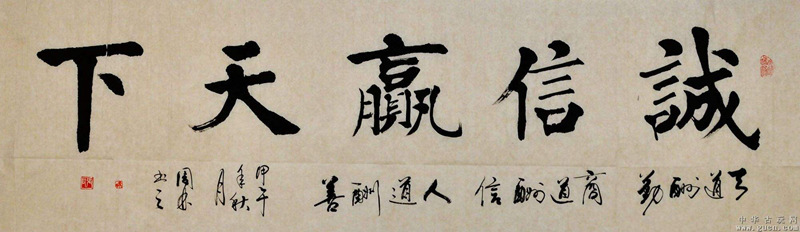 誠信贏天下
天道酬勤
商道酬信
人道酬善
甲午
年秋
月
周
书之
中华古玩网
www.gucn.com